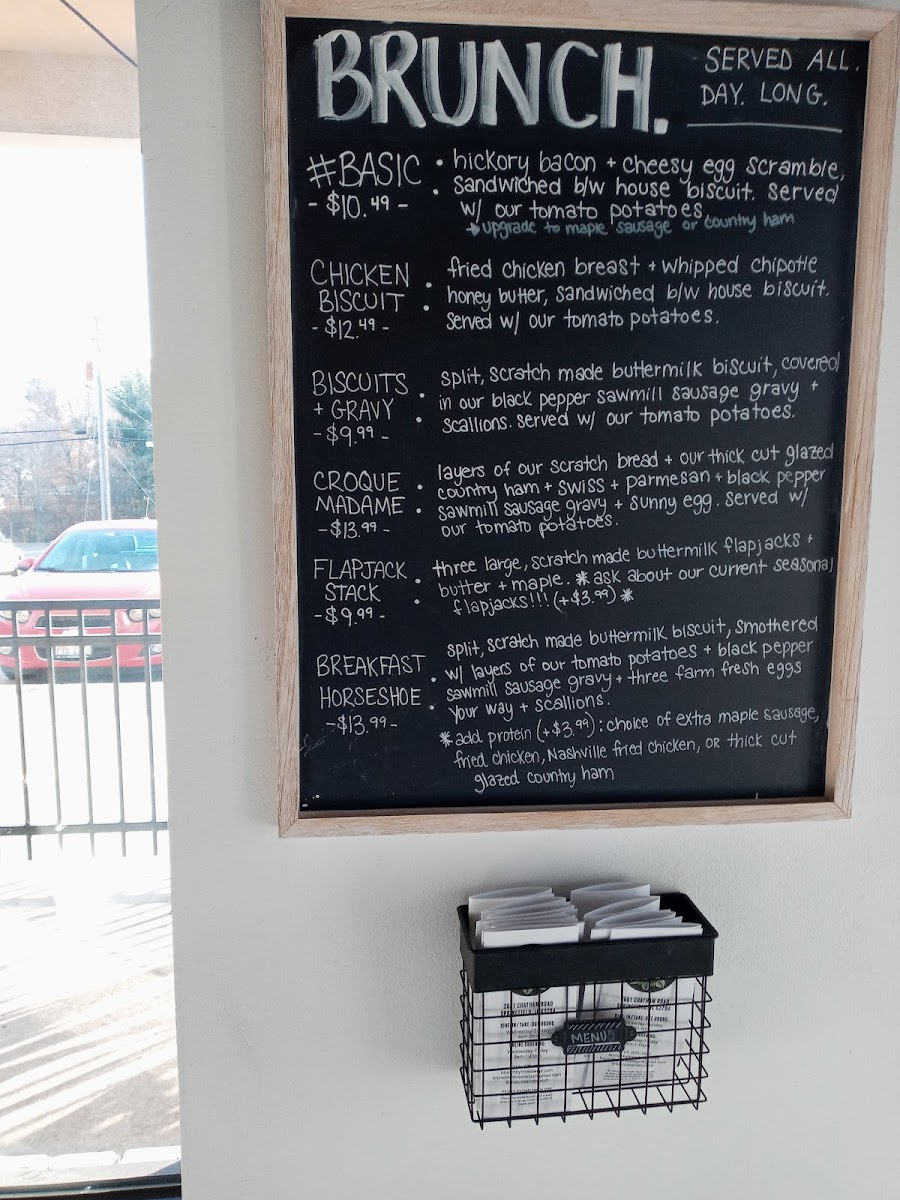 BRUNCH.
SERVED ALL.
DAY. LONG.
#BASIC
- $10.49 -
• hickory bacon + cheesy egg scramble,
• sandwiched b/w house biscuit. served
w/ our tomato potatoes.
→ upgrade to maple sausage or country ham
CHICKEN
BISCUIT
- $12.49 -
• fried chicken breast + whipped chipotle
• honey butter, sandwiched b/w house biscuit.
served w/ our tomato potatoes.
BISCUITS
+ GRAVY
- $9.99 -
split, scratch made buttermilk biscuit, covered
• in our black pepper sawmill sausage gravy +
• scallions. served w/ our tomato potatoes.
CROQUE
MADAME
- $13.99 -
layers of our scratch bread + our thick cut glazed
• country ham + swiss + parmesan + black pepper
• sawmill sausage gravy + sunny egg. served w/
our tomato potatoes.
FLAPJACK
STACK
- $9.99 -
three large, scratch made buttermilk flapjacks +
• butter + maple. * ask about our current seasonal
• flapjacks!!! (+$3.99) *
BREAKFAST
HORSESHOE
- $13.99 -
split, scratch made buttermilk biscuit, smothered
• w/ layers of our tomato potatoes + black pepper
sawmill sausage gravy + three farm fresh eggs
• your way + scallions.
* add protein (+$3.99): choice of extra maple sausage,
fried chicken, Nashville fried chicken, OR thick cut
glazed country ham
MENUS
CHATHAM ROAD